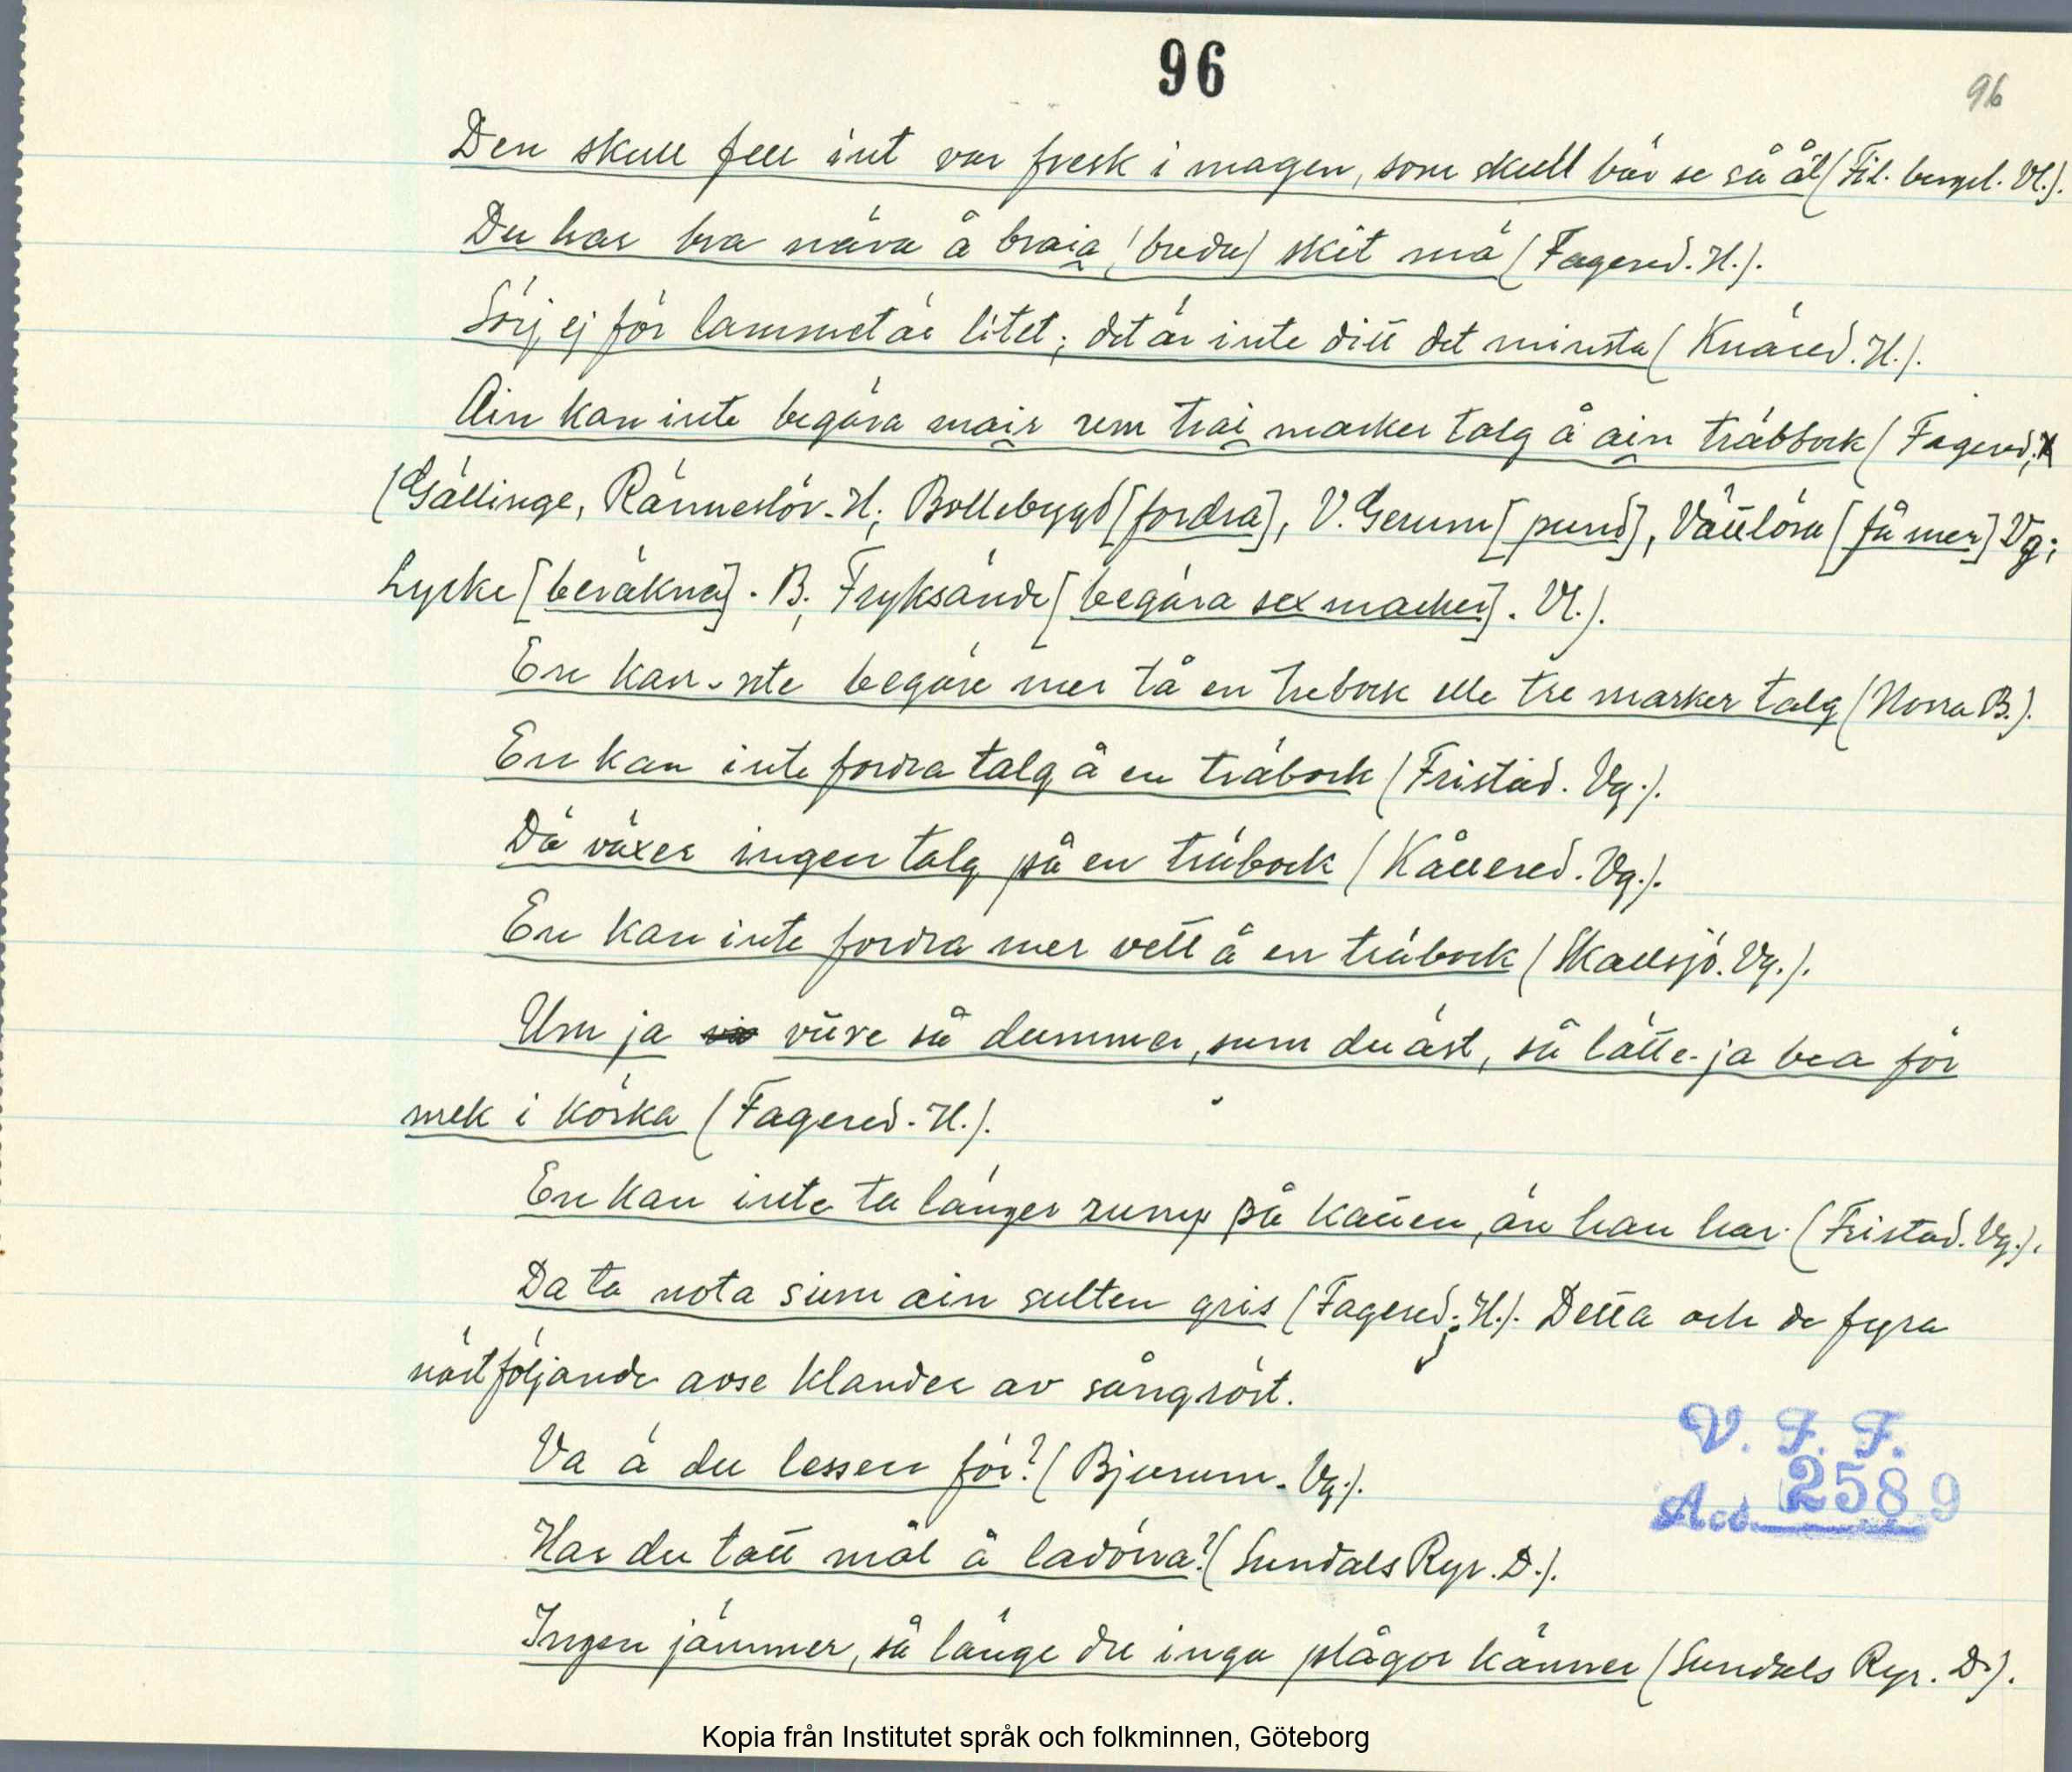 96
96
Den skull fell int var fresk i magen, som skull bär se så ål (Fil. bergsl. Vl.).
Du har bra näva å braia (breda) skit mä (Fagered. H.).
Sörj ej för lammet är litet; det är inte ditt det minsta (Knäred. H.).
Ain kan inte begära mair sem trai marker talg å ain träbbock (Fagered,
(Gällinge, Ränneslöv. H; Bollebygd [fordra], V. Gerum [pund], Vättlösa [få mer] Vg;
Lycke [beräkna]. B; Fryksände [begära sex marker]. Vl.).
En kan-nte begäre mer tå en trebock elle tre marker talg (Norra B.).
En kan inte fordra talg å en träbock (Fristad. Vg.).
Dä växer ingen talg på en träbock (Kållered. Vg.).
En kan inte fordra mer vett å en träbock (Skallsjö. Vg.).
Um ja vure så dummer, sum du äst, så lätte-ja bea för
mek i körka (Fagered. H.).
En kan inte ta länger rump på katten, än han har. (Fristad. Vg.).
Da ta nota sum ain sulten gris (Fagered. H.). Detta och de fyra
näst följande avse klander av sångröst.
Va ä du lessen för? (Bjurum. Vg.).
Har du tatt mål å ladörra? (Sundals Ryr. D.).
Ingen jämmer, så länge du inga plågor känner (Sundals Ryr. D.).
V. F. F.
Acc. 2589
Kopia från Institutet språk och folkminnen, Göteborg